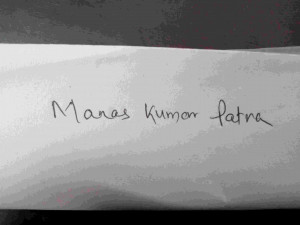 Manas Kumar Patra